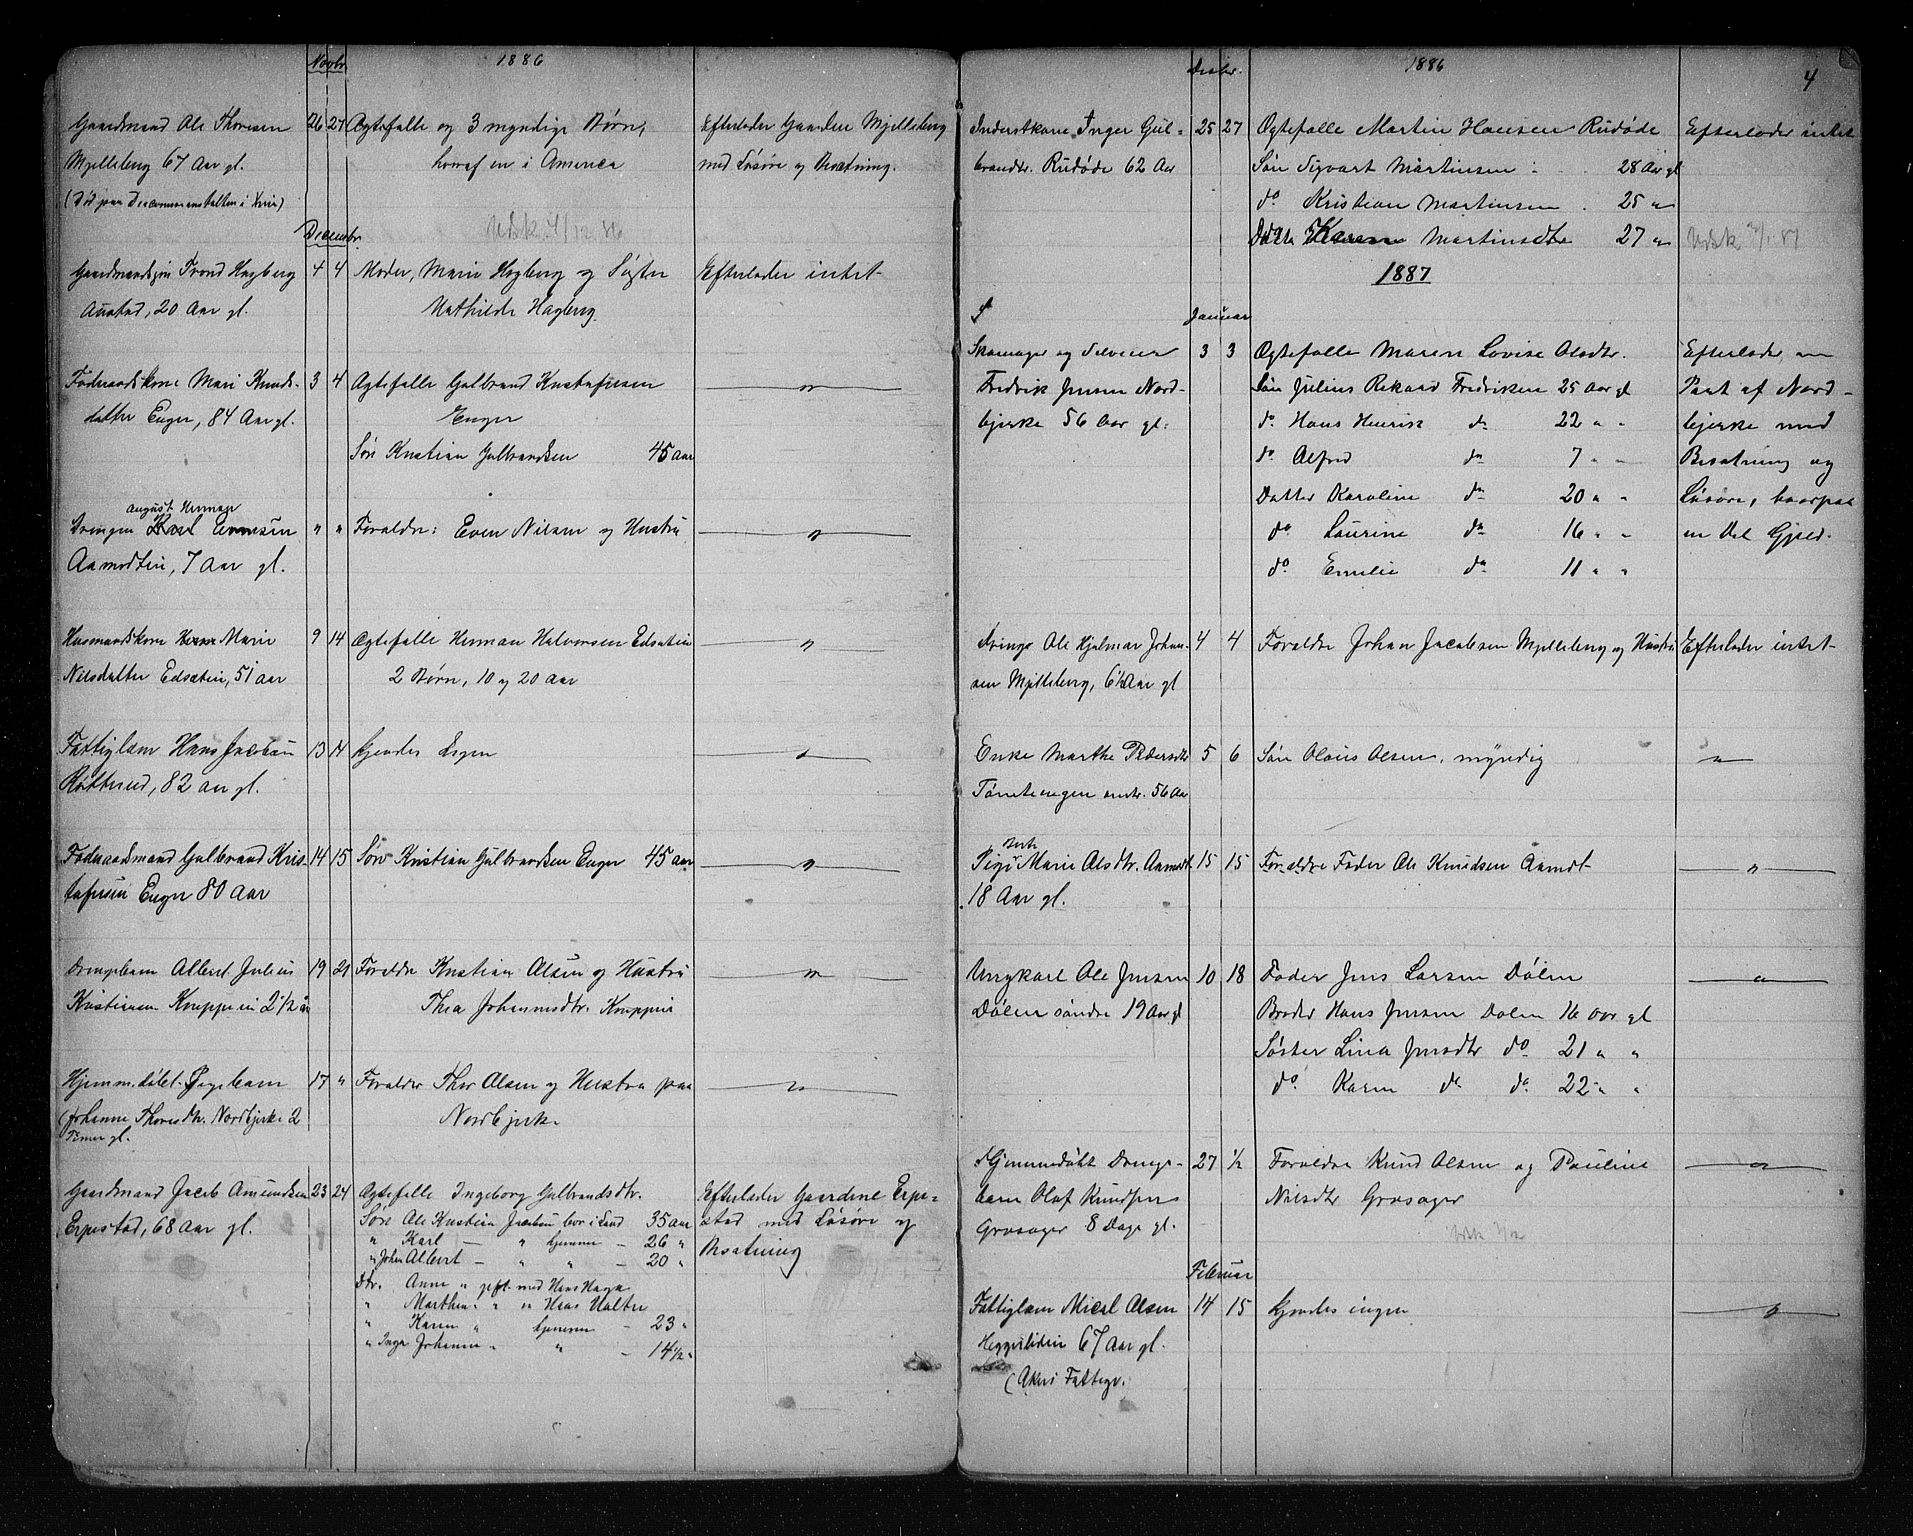 Novbr. 1886
Gaardmand Ole Thoresen 26 27 Ægtefælle og 3 myndige Børn, Efterlader Gaarden Mjelleberg
Mjelleberg 67 Aar gl. hvoraf en i America med Løsøre og Besætning.
(Død paa
Udsk 4/12 86
Decembr.
Gaardmandsøn Trond Hagberg 4 4 Moder, Marie Hagberg og Søster Efterlader intet
Austad, 20 Aar gl. Mathilde Hagberg
Føderaadskone Mari Knuds- 3 4 Ægtefælle Gulbrand Kristofersen "
datter Enger, 84 Aar gl. Enger
Søn Kristian Gulbrandsen 45 aar
august Herman
Drengen Karl Evensen " " Forældre: Even Nilsen og Hustru "
Aamodteie, 7 Aar gl.
Husmandskone Marie 9 14 Ægtefælle Herman Halvorsen Edsæteie "
Nilsdatter Edsæteie, 51 aar 2 Børn, 10 og 20 aar
Fattiglem Hans Jacobsen 13 14 Kjendes Ingen "
82 aar gl.
Føderaadsmand Gulbrand Kris- 14 15 Søn Kristian Gulbrandsen Enger 45 aar "
tofersen Enger 80 Aar
Drengebarn Albert Julius 19 21 Forældre Kristian Olsen og Hustru "
Kristiansen Knappeie 2 1/2 år Thea Johannesdtr. Knappeie
Hjemmedøbt Pigebarn 17 " Forældre Thor Olsen og Hustru paa "
(Johanne Thoresdtr. Nordbjerke 2 Nordbjerke
Timer gl.
Gaardmand Jacob Amundsen 23 24 Ægtefælle Ingeborg Gulbrandsdtr. Efterlader Gaardene Erpe-
Erpestad, 68 Aar gl. Søn Ole Kristian Jacobsen bor i Land 35 aar stad med Løsøre og
" Karl — " hjemme — 26 " Besætning
" Johan Albert — " " — 20 "
Dtr. Anne " gift med Hans Haga
" Marthea " " Hans Halter
" Karen " hjemme — 23 "
" Inger Johanne " " — 14 1/2 "
Decbr. 1886 4
Inderstkone Inger Gul- 25 27 Ægtefælle Martin Hansen Rudøde Efterlader intet
brandsdtr. Rudøde 62 Aar Søn Sigvart Martinsen 28 Aar gl
do Kristian Martinsen 25 "
Datter Karen Martinsdtr 27 "
1887
Januar
Skomager og Selveier 3 3 Ægtefælle Maren Lovise Olsdtr. Efterlader en
Fredrik Jensen Nord- Søn Julius Rikard Fredriksen 25 Aar gl Part af Nord-
bjerke 56 Aar gl. do Hans Henrik do 22 " " bjerke med
do Alfred do 7 " " Besætning og
Datter Karoline do 20 " " Løsøre, hvorpaa
do Laurine do 16 " " en Del Gjæld.
do Emilie do 11 " "
Dreng Ole Hjalmar Johan- 4 4 Forældre Johan Jacobsen Mjelleberg og Hustru Efterlader intet
sen Mjelleberg, 6 1/2 Aar gl
Enke Marthe Pedersdtr 5 6 Søn Olaus Olsen, myndig "
Tømteengen omtr. 56 Aar
Pige Marie Olsdtr. Aamodt 15 15 Forældre Fader Ole Knudsen Aamodt "
18 Aar gl.
Ungkarl Ole Jensen 10 18 Fader Jens Larsen Dølen "
Dølen søndre 19 Aar gl Broder Hans Jensen Dølen 16 aar gl
Søster Lina Jensdtr do 21 " "
do. Karen do do 22 " "
Hjemmedøbt Drenge- 27 1/2 Forældre Knud Olsen og Pauline "
barn Olaf Knudsen Nilsdtr Grøsager
Grøsager 8 Dage gl.
Februar
Fattiglem Micel Olsen 14 15 Kjendes ingen "
67 Aar gl.
(Akers Fattigv.